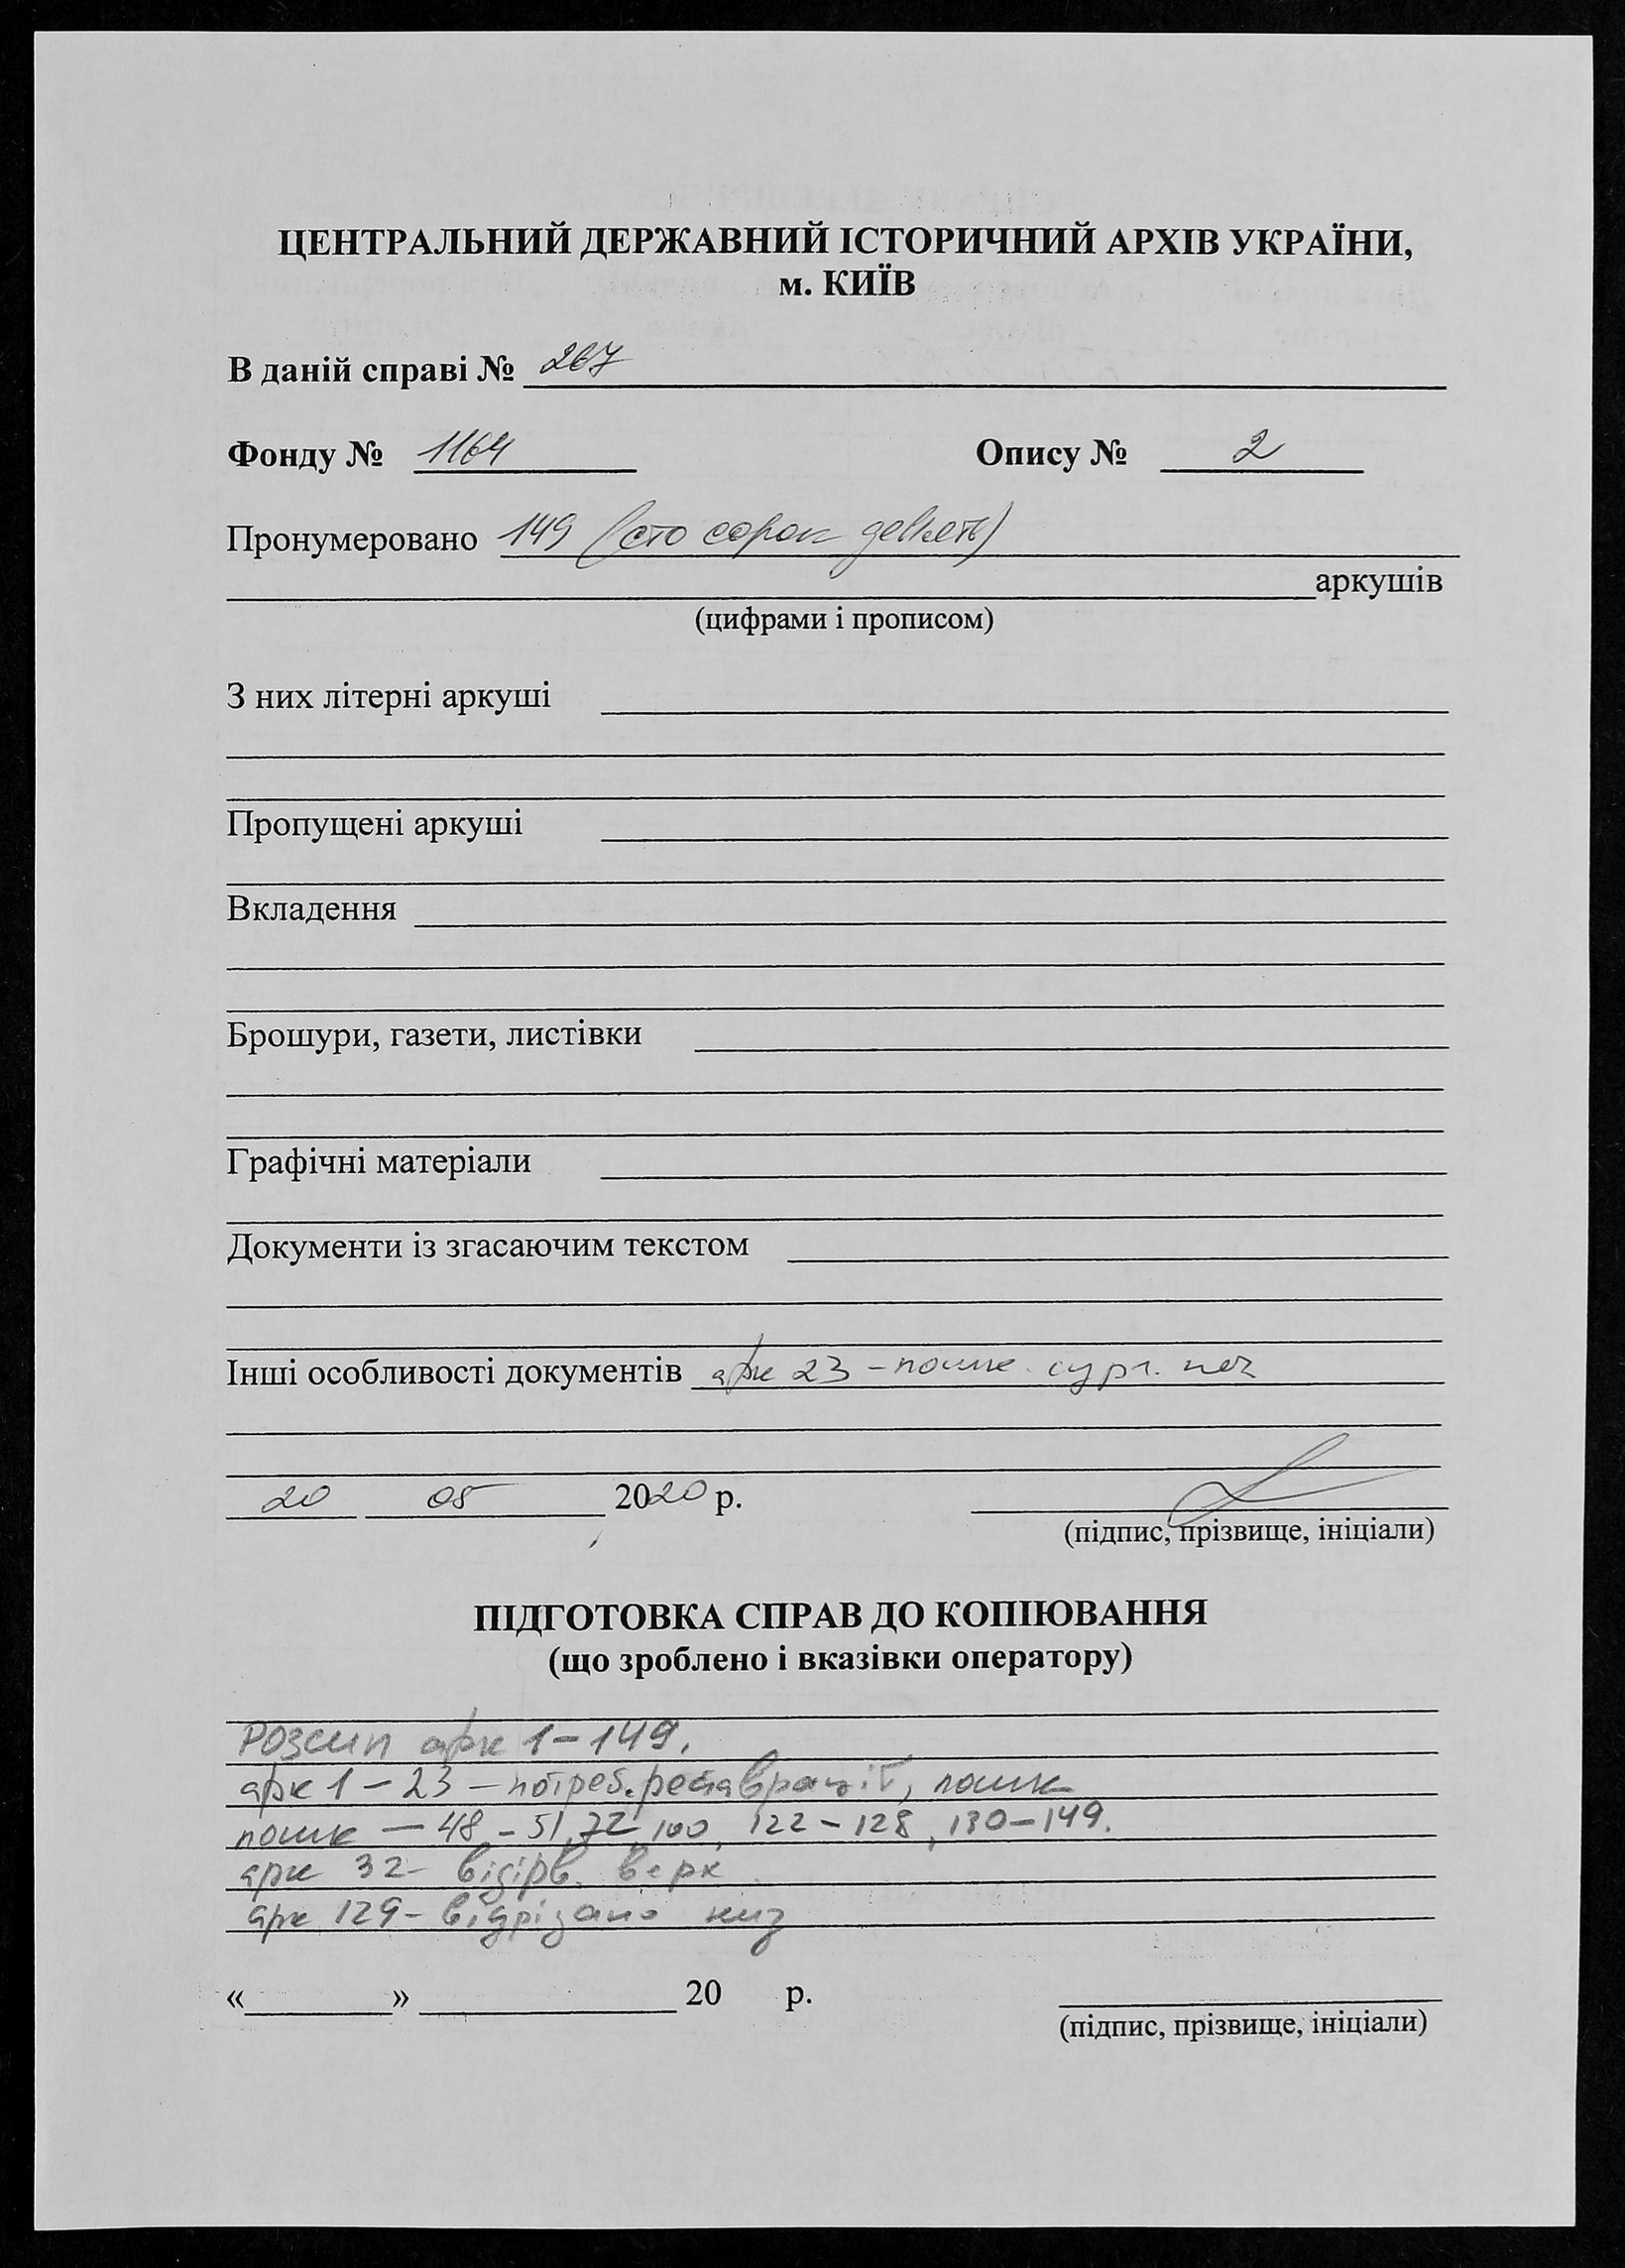 ЦЕНТРАЛЬНИЙ ДЕРЖАВНИЙ ІСТОРИЧНИЙ АРХІВ УКРАЇНИ,
м. КИЇВ
В даній справі № 267
Фонду № 1164 Опису № 2
Пронумеровано 149 (сто сорок девять)
аркушів
(цифрами і прописом)
З них літерні аркуші
Пропущені аркуші
Вкладення
Брошури, газети, листівки
Графічні матеріали
Документи із згасаючим текстом
Інші особливості документів арк 23 – пошк. сург. печ
20 05 2020 р.
(підпис, прізвище, ініціали)
ПІДГОТОВКА СПРАВ ДО КОПІЮВАННЯ
(що зроблено і вказівки оператору)
Розсип арк 1–149.
арк 1 – 23 – потреб. реставрації, пошк
пошк — 48 – 51, 72, 100, 122 – 128, 130–149.
арк 32 – відірв. верх
арк 129 – відрізано низ
« » 20 р.
(підпис, прізвище, ініціали)